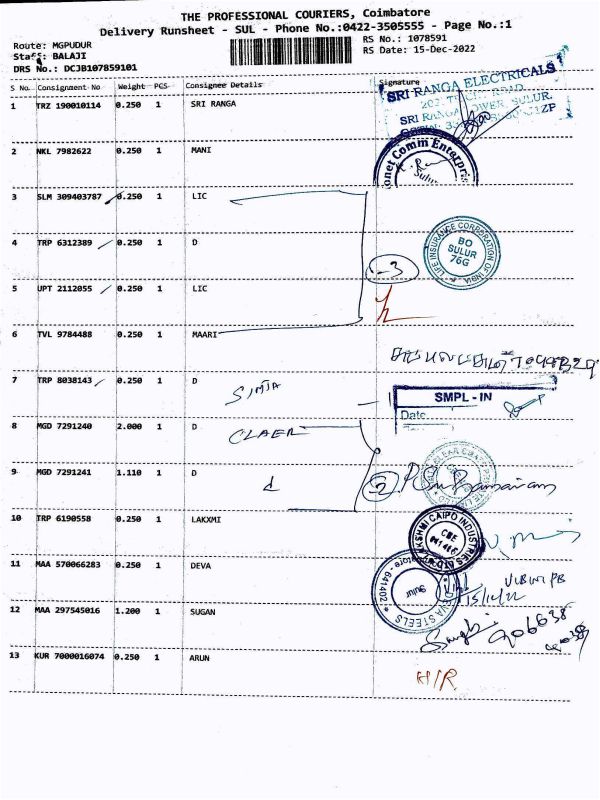 THE PROFESSIONAL COURIERS, Coimbatore
Delivery Runsheet - SUL - Phone No.:0422-3505555 - Page No.:1
Route: MGPUDUR
RS No.: 1078591
Staff: BALAJI
RS Date: 15-Dec-2022
DRS No.: DCJB107859101
S No. Consignment No Weight PCS Consignee Details Signature
1 TRZ 190010114 0.250 1 SRI RANGA
SRI RANGA ELECTRICALS
SRI RANGA TOWER, SULUR.
2 NKL 7982622 0.250 1 MANI
onet Comm Enterpris
Sulur
3 SLM 309403787 0.250 1 LIC
LIFE INSURANCE CORPORATION OF INDIA
BO
SULUR
76G
4 TRP 6312389 0.250 1 D
-3
5 UPT 2112055 0.250 1 LIC
6 TVL 9784488 0.250 1 MAARI
7 TRP 8038143 0.250 1 D
SIMTA
-1
SMPL - IN
Date
8 MGD 7291240 2.000 1 D
CLAER
9 MGD 7291241 1.110 1 D
d
2
10 TRP 6190558 0.250 1 LAKXMI
LAKSHMI CAIPO INDUSTRIES LTD
CBE
641 406
11 MAA 570066283 0.250 1 DEVA
15/12/22
STEELS
Sulur
641402
12 MAA 297545016 1.200 1 SUGAN
13 KUR 7000016074 0.250 1 ARUN
H/R